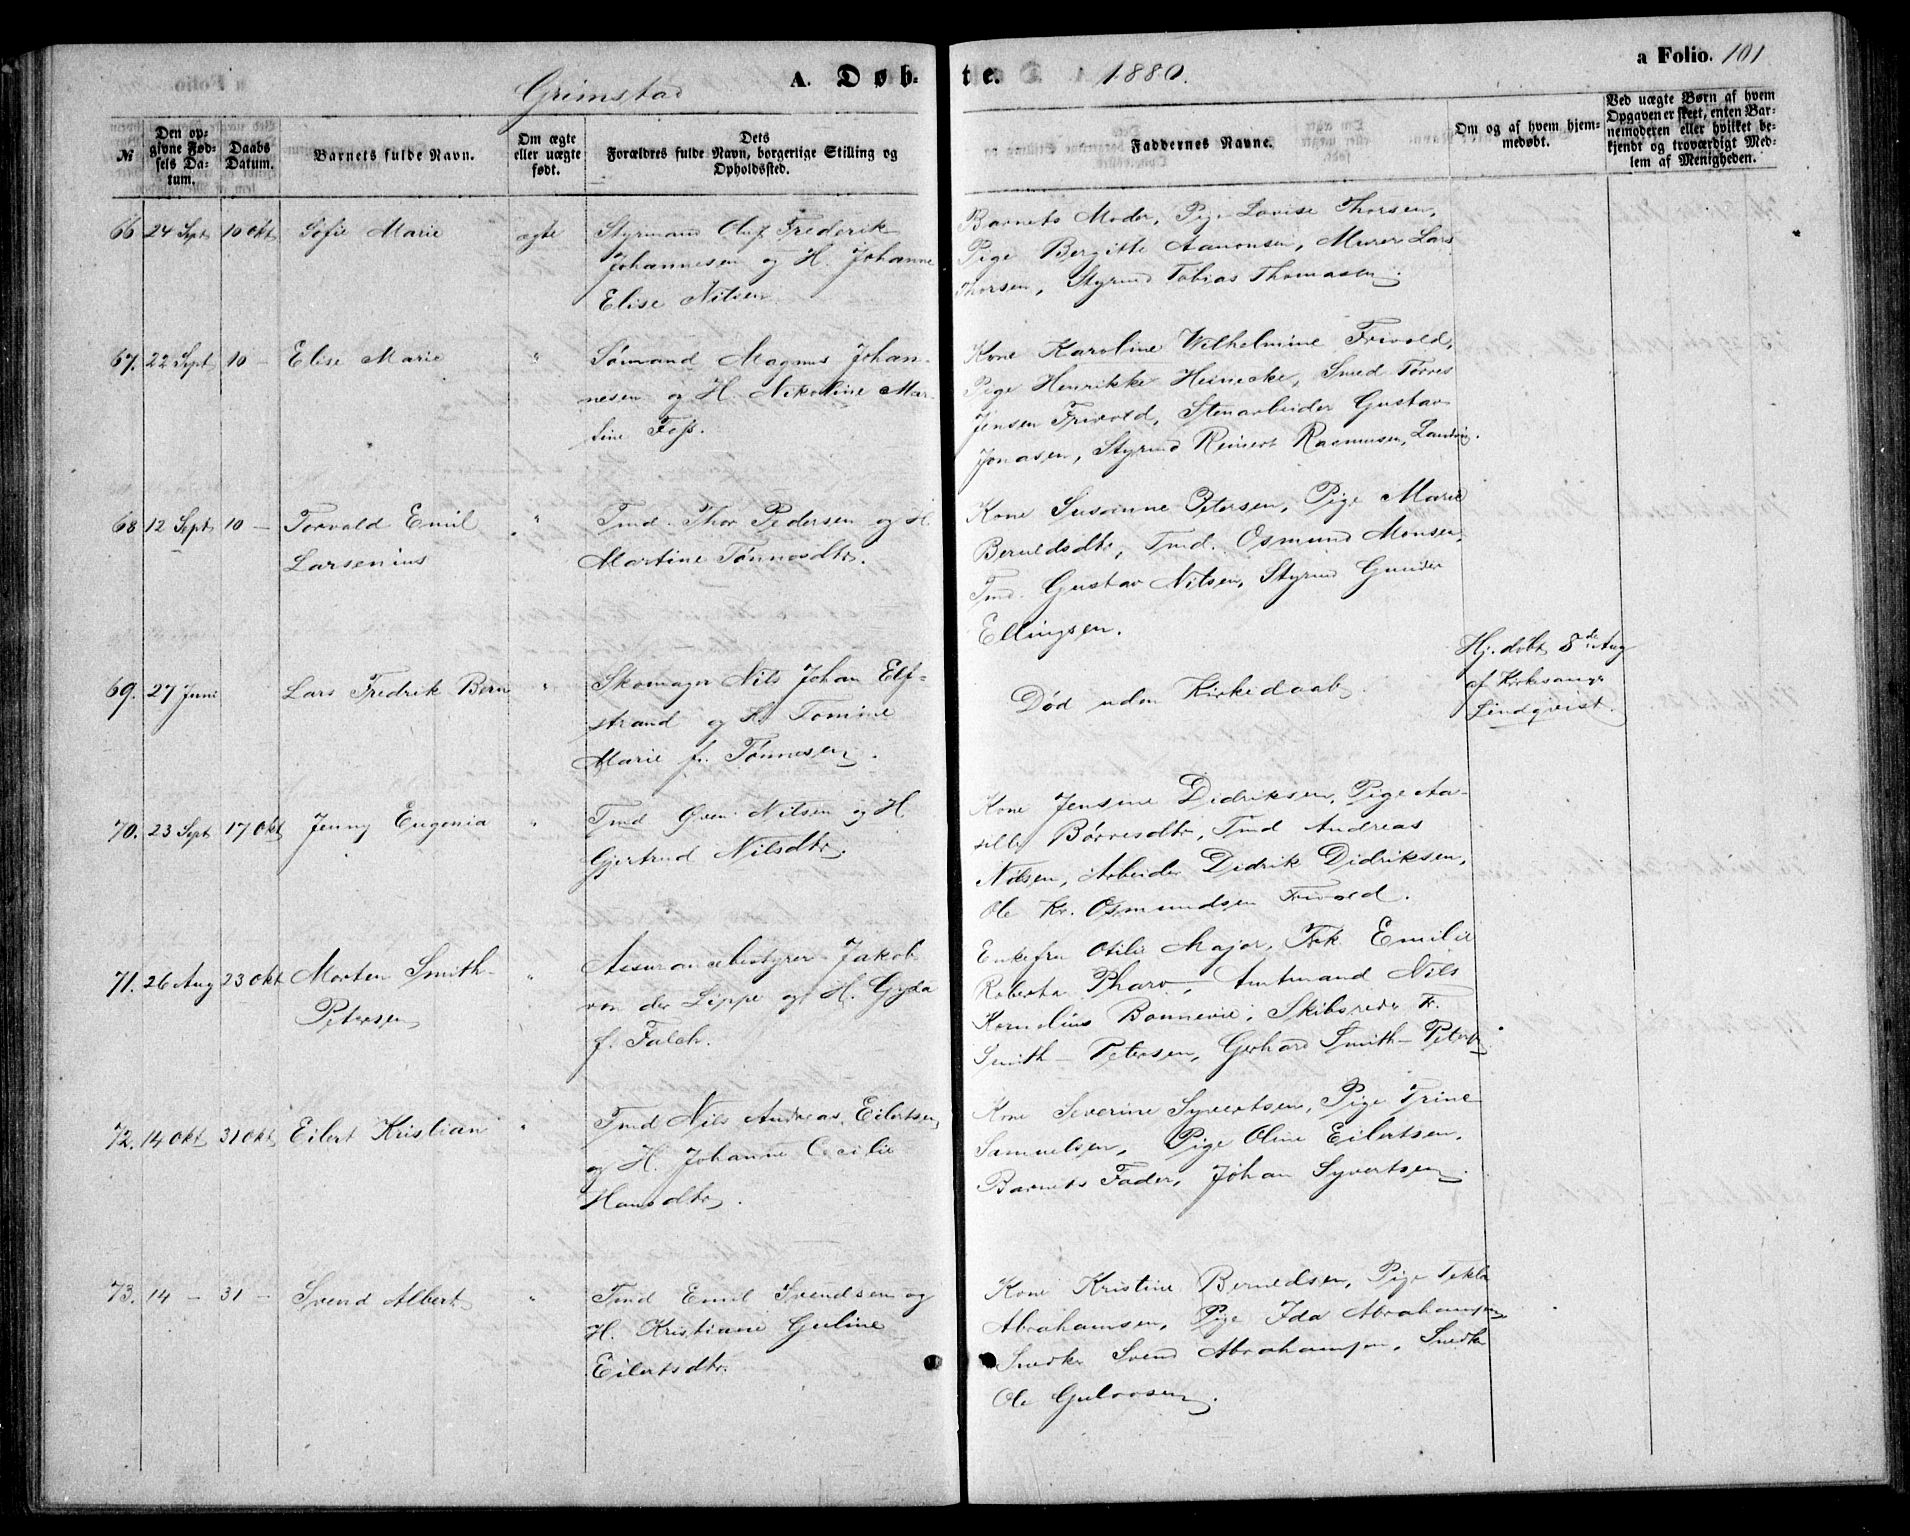 Grimstad A. Døb- te. 1880. a Folio. 101
№
Den op-
givne Fød-
sels Da-
tum.
Daabs
Datum.
Barnets fulde Navn.
Om ægte
eller uægte
født.
Dets
Forældres fulde Navn, borgerlige Stilling og
Opholdssted.
Faddernes Navne.
Om og af hvem hjem-
medøbt.
Ved uægte Børn af hvem
Opgaven er skeet, enten Bar-
nemoderen eller hvilket be-
kjendt og troværdigt Med-
lem af Menigheden.
66 24 Sept 10 Okt Sofie Marie ægte
Styrmand Oluf Frederik
Johannesen og H. Johanne
Elise Nilsen
Barnets Moder, Pige Lovise Thorsen,
Pige Bergitte Aanonsen, Murer Lars
Thorsen, Styrmd Tobias Thomasen.
67. 22 Sept 10 — Elise Marie "
Sømand Magnus Johan-
nesen og H. Nikoline Mar-
tine Foss.
Kone Karoline Wilhelmine Frivold,
Pige Henrikke Heinecke, Smed Tørres
Jensen Frivold, Stenarbeider Gustav
Jonasen, Styrmd Reinert Rasmusen, Landvig.
68 12 Sept 10 — Torvald Emil "
Larsenius
Tmd. Thor Pedersen og H.
Martine Tønnesdtr.
Kone Susanne Petersen, Pige Marie
Berneldsdtr, Tmd. Osmund Monsen,
Tmd. Gustav Nilsen, Styrmd Gunder
Ellingsen.
69. 27 Juni Lars Fredrik Bern "
Skomager Nils Johan Elf-
strand og H. Tomine
Marie f. Tønnesen.
Død uden Kirkedaab.
Hj. døbt 8de Aug
af Kirkesanger
Lindqvist.
70. 23 Sept 17 Okt Jenny Eugenia "
Tmd Sven Nilsen og H
Gjertrud Nilsdtr.
Kone Jensine Didriksen, Pige Aa-
silde Børresdtr, Tmd Andreas
Nilsen, Arbeider Didrik Didriksen,
Ole Kr. Osmundsen Frivold.
71. 26 Aug 23 Okt Morten Smith- "
Petersen
Assurancebestyrer Jakob
von der Lippe og H. Gyda
f. Falch.
Enkefru Otilie Major, Frk. Emilie
Roberta Pharo, Amtmand Nils
Kornelius Bonnevie, Skibsreder Fr.
Smith-Petersen, Gerhard Smith-Petersen
72. 14 Okt 31 Okt Eilert Kristian "
Tmd Nils Andreas Eilertsen
og H. Johanne Cecilie
Hansdtr.
Kone Severine Syvertsen, Pige Trine
Samuelsen, Pige Oline Eilertsen,
Barnets Fader, Johan Syvertsen.
73. 14 — 31 — Svend Albert "
Tmd Emil Svendsen og
H. Kristiane Guline
Eilertsdtr.
Kone Kristine Berneldsen, Pige Tekla
Abrahamsen, Pige Ida Abrahamsen,
Snedker Svend Abrahamsen, Snedker
Ole Gulovsen.